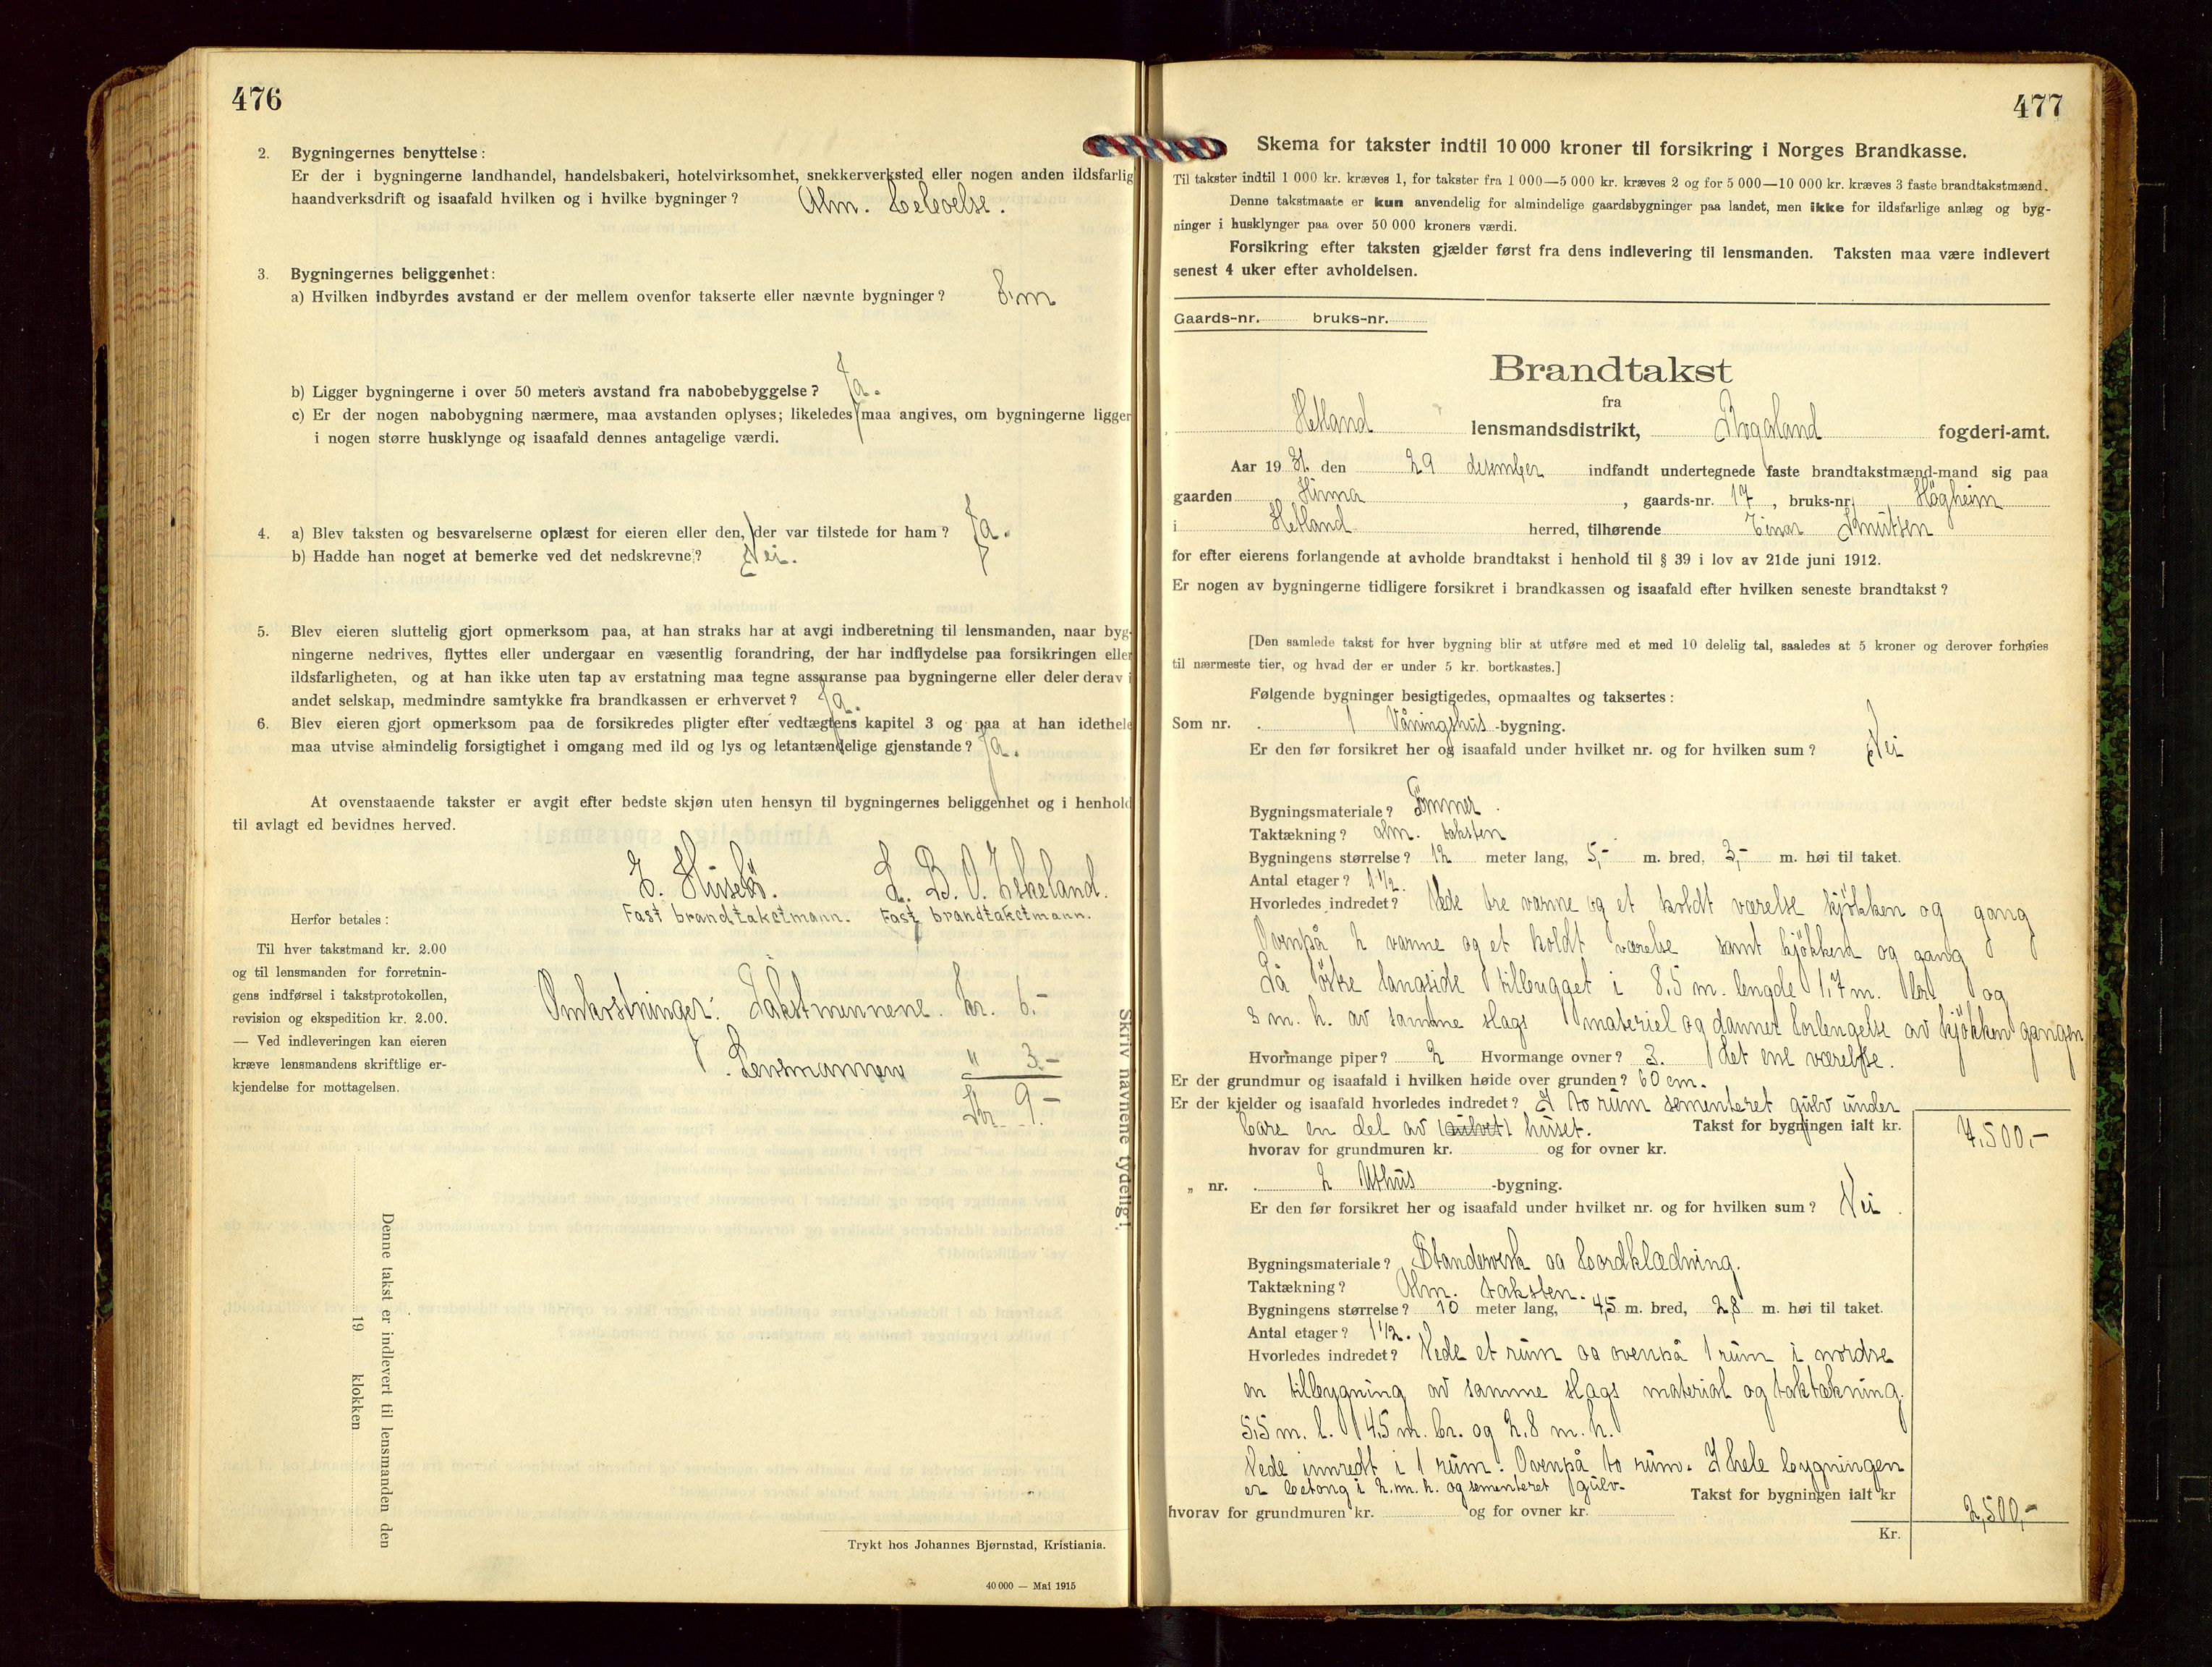 476
2. Bygningernes benyttelse:
Er der i bygningerne landhandel, handelsbakeri, hotelvirksomhet, snekkerverksted eller nogen anden ildsfarlig
haandverksdrift og isaafald hvilken og i hvilke bygninger? Alm. beboelse.
3. Bygningernes beliggenhet:
a) Hvilken indbyrdes avstand er der mellem ovenfor takserte eller nævnte bygninger? 8 m
b) Ligger bygningerne i over 50 meters avstand fra nabobebyggelse? Ja.
c) Er der nogen nabobygning nærmere, maa avstanden oplyses; likeledes maa angives, om bygningerne ligger
i nogen større husklynge og isaafald dennes antagelige værdi.
4. a) Blev taksten og besvarelserne oplæst for eieren eller den, der var tilstede for ham? Ja.
b) Hadde han noget at bemerke ved det nedskrevne? Nei.
5. Blev eieren sluttelig gjort opmerksom paa, at han straks har at avgi indberetning til lensmanden, naar byg-
ningerne nedrives, flyttes eller undergaar en væsentlig forandring, der har indflydelse paa forsikringen eller
ildsfarligheten, og at han ikke uten tap av erstatning maa tegne assuranse paa bygningerne eller deler derav i
andet selskap, medmindre samtykke fra brandkassen er erhvervet? Ja.
6. Blev eieren gjort opmerksom paa de forsikredes pligter efter vedtægtens kapitel 3 og paa at han idethele
maa utvise almindelig forsigtighet i omgang med ild og lys og letantændelige gjenstande? Ja.
At ovenstaaende takster er avgit efter bedste skjøn uten hensyn til bygningernes beliggenhet og i henhold
til avlagt ed bevidnes herved.
E. Husebø. L. B. O. Eskeland.
Fast brandtakstmann. Fast brandtakstmann.
Herfor betales:
Til hver takstmand kr. 2.00
og til lensmanden for forretnin-
gens indførsel i takstprotokollen,
revision og ekspedition kr. 2.00.
— Ved indleveringen kan eieren
kræve lensmandens skriftlige er-
kjendelse for mottagelsen.
Omkostninger: Takstmennene kr. 6.-
Lensmannen " 3.-
Kr. 9.-
Skriv navnene tydelig!
Denne takst er indlevert til lensmanden den
19 klokken
Trykt hos Johannes Bjørnstad, Kristiania.
40 000 — Mai 1915
477
Skema for takster indtil 10 000 kroner til forsikring i Norges Brandkasse.
Til takster indtil 1 000 kr. kræves 1, for takster fra 1 000—5 000 kr. kræves 2 og for 5 000—10 000 kr. kræves 3 faste brandtakstmænd.
Denne takstmaate er kun anvendelig for almindelige gaardsbygninger paa landet, men ikke for ildsfarlige anlæg og byg-
ninger i husklynger paa over 50 000 kroners værdi.
Forsikring efter taksten gjælder først fra dens indlevering til lensmanden. Taksten maa være indlevert
senest 4 uker efter avholdelsen.
Gaards-nr. bruks-nr.
Brandtakst
fra
Hetland lensmandsdistrikt, Rogaland fogderi-amt.
Aar 1931 den 29 desember indfandt undertegnede faste brandtakstmænd-mand sig paa
gaarden Hinna, gaards-nr. 17, bruks-nr. Høgheim
i Hetland herred, tilhørende Einar Knutsen
for efter eierens forlangende at avholde brandtakst i henhold til § 39 i lov av 21de juni 1912.
Er nogen av bygningerne tidligere forsikret i brandkassen og isaafald efter hvilken seneste brandtakst?
[Den samlede takst for hver bygning blir at utføre med et med 10 delelig tal, saaledes at 5 kroner og derover forhøies
til nærmeste tier, og hvad der er under 5 kr. bortkastes.]
Følgende bygninger besigtigedes, opmaaltes og taksertes:
Som nr. 1 Våningshus-bygning.
Er den før forsikret her og isaafald under hvilket nr. og for hvilken sum? Nei
Bygningsmateriale? Tømmer.
Taktækning? alm. taksten
Bygningens størrelse? 12 meter lang, 5,- m. bred, 3,- m. høi til taket.
Antal etager? 1 1/2.
Hvorledes indredet? Nede tre varme og et koldt værelse kjøkken og gang
Ovenpå 2 varme og et koldt værelse samt kjøkken og gang
På østre langside tilbygget i 8,5 m. lengde 1,7 m. br. og
3 m. h. av samme slags materiel og danner forlengelse av kjøkken gangen
Hvormange piper? 2 Hvormange ovner? 3. det ene værelse.
Er der grundmur og isaafald i hvilken høide over grunden? 60 cm.
Er der kjelder og isaafald hvorledes indredet? I to rum sementeret gulv under
bare en del av (gulvet) huset. Takst for bygningen ialt kr. 7,500,-
hvorav for grundmuren kr. og for ovner kr.
„ nr. 2 Uthus-bygning.
Er den før forsikret her og isaafald under hvilket nr. og for hvilken sum? Nei.
Bygningsmateriale? Standerverk og bordklædning.
Taktækning? Alm. taksten.
Bygningens størrelse? 10 meter lang, 4,5 m. bred, 2,8 m. høi til taket.
Antal etager? 1 1/2.
Hvorledes indredet? Nede et rum og ovenpå 1 rum i nordre
en tilbygning av samme slags material og taktækning.
5,5 m. l. 4,5 m. br. og 2,8 m. h.
Nede innredt i 1 rum. Ovenpå to rum. I hele bygningen
er betong i 2. m. h. og sementeret gulv. Takst for bygningen ialt kr 2,500,-
hvorav for grundmuren kr. og for ovner kr.
Kr.